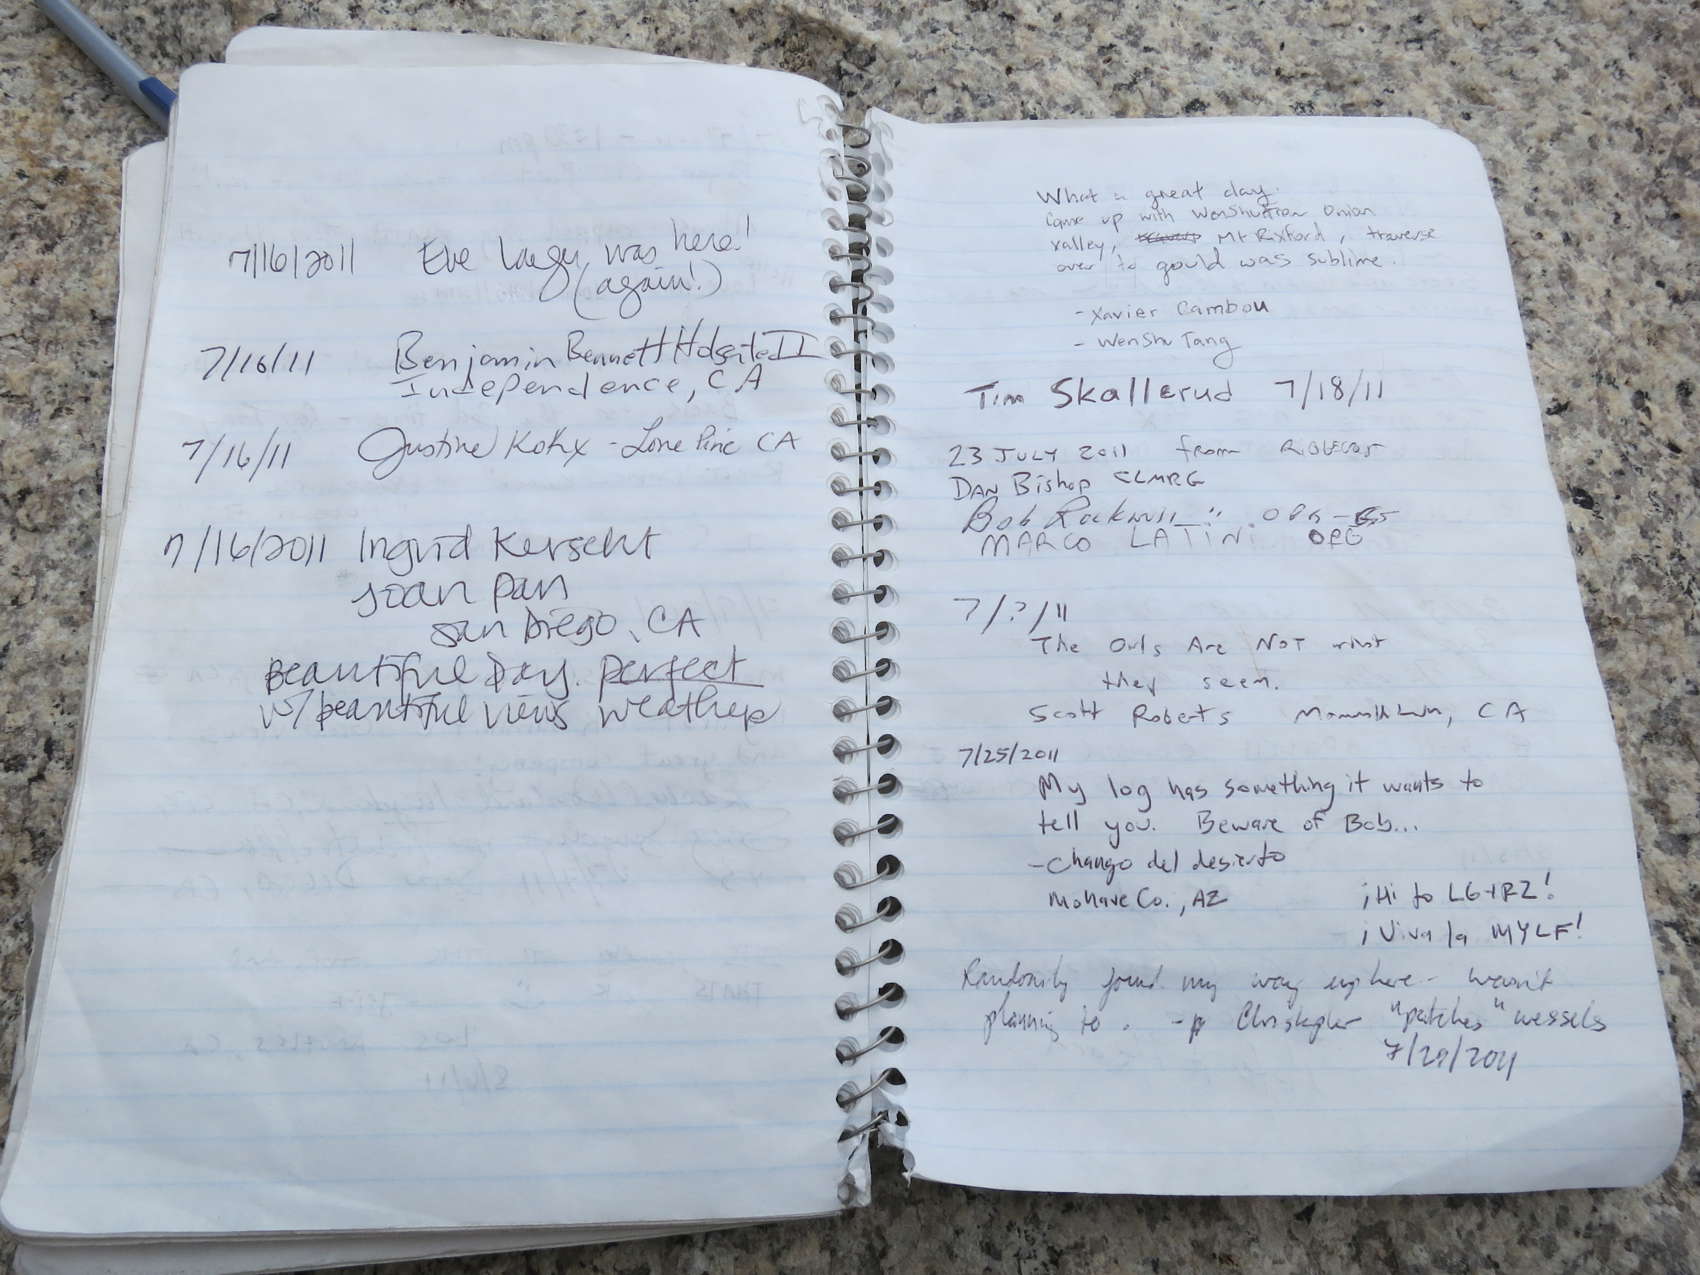 7/16/2011 Eve was here!
(again!)
7/16/11 Benjamin Bennett II
Independence, CA
7/16/11 Justine - Lone Pine CA
7/16/2011 Ingrid
Joan Pan
San Diego, CA
Beautiful Day. perfect
w/ beautiful views weather
What a great day.
Came up with Wenshu from Onion
valley, Mt Rixford, traverse
over to gould was sublime.
- Xavier Cambou
- Wenshu Tang
Tim Skallerud 7/18/11
23 JULY 2011 from
DAN Bishop CLMRG
Bob
MARCO LATINI
7/?/11
The Owls Are NOT what
they seem.
Scott Roberts CA
7/25/2011
My log has something it wants to
tell you. Beware of Bob...
- Chango del desierto
Mohave Co., AZ ¡Hi to LG+RZ!
¡Viva la MYLF!
Randomly found my way up here - wasn't
planning to. - Christopher "patches" wessels
7/29/2011